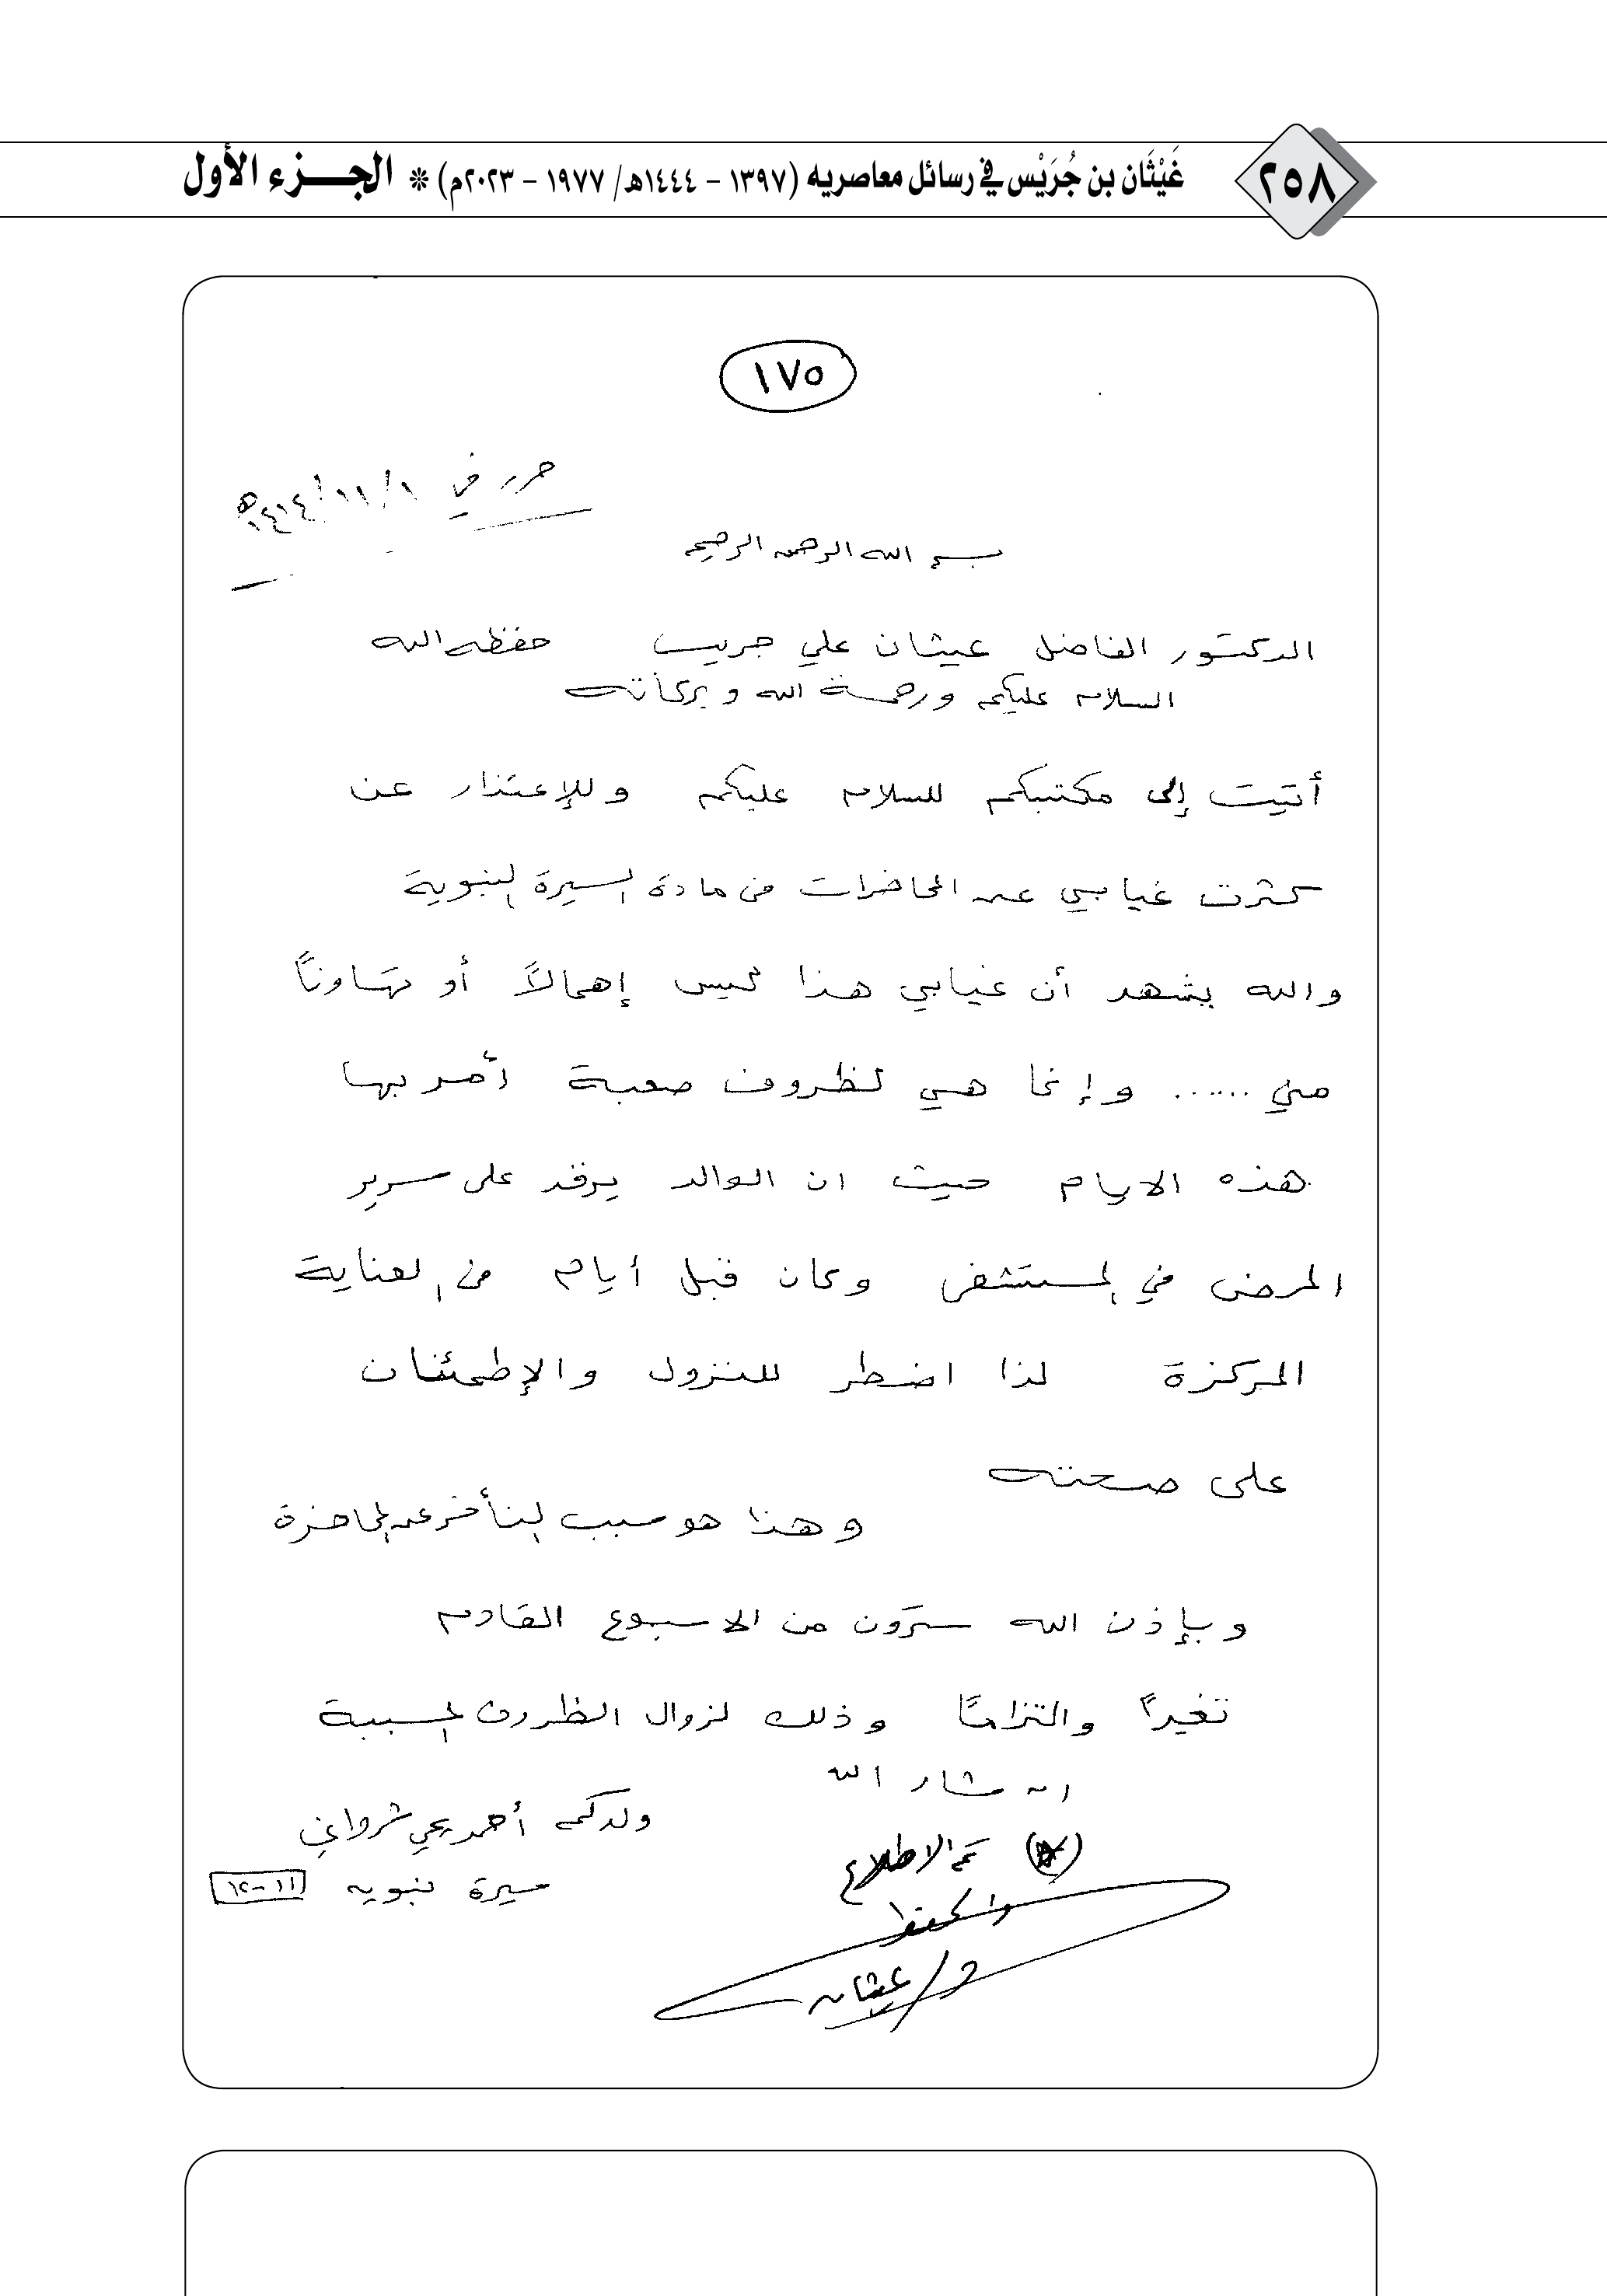 ٢٥٨
غَيْثَان بن جُرَيْس في رسائل معاصريه (١٣٩٧ - ١٤٤٤هـ/ ١٩٧٧ - ٢٠٢٣م) * الجـزء الأول
١٧٥
حرر في ١/١١/١٤١٤هـ
بسم الله الرحمن الرحيم
الدكتور الفاضل غيثان علي جريس حفظه الله
السلام عليكم ورحمة الله وبركاته
أتيت إلى مكتبكم للسلام عليكم وللإعتذار عن
كثرت غيابي عن المحاضرات في مادة السيرة النبوية
والله يشهد أن غيابي هذا ليس إهمالاً أو تهاوناً
مني ...... وإنما هي لظروف صعبة أمر بها
هذه الايام حيث ان الوالد يرقد على سرير
المرض في المستشفى وكان قبل أيام في العناية
المركزة لذا اضطر للنزول والإطمئنان
على صحته
وهذا هو سبب التأخر عن المحاضرة
وبإذن الله سترون من الاسبوع القادم
تغيراً والتزاماً وذلك لزوال الظروف المسببة
ان شاء الله
ولدكم أحمد يحي شرواني
سيرة نبويه ١١-١٢
تم الاطلاع
والحفظ
د/ غيثان